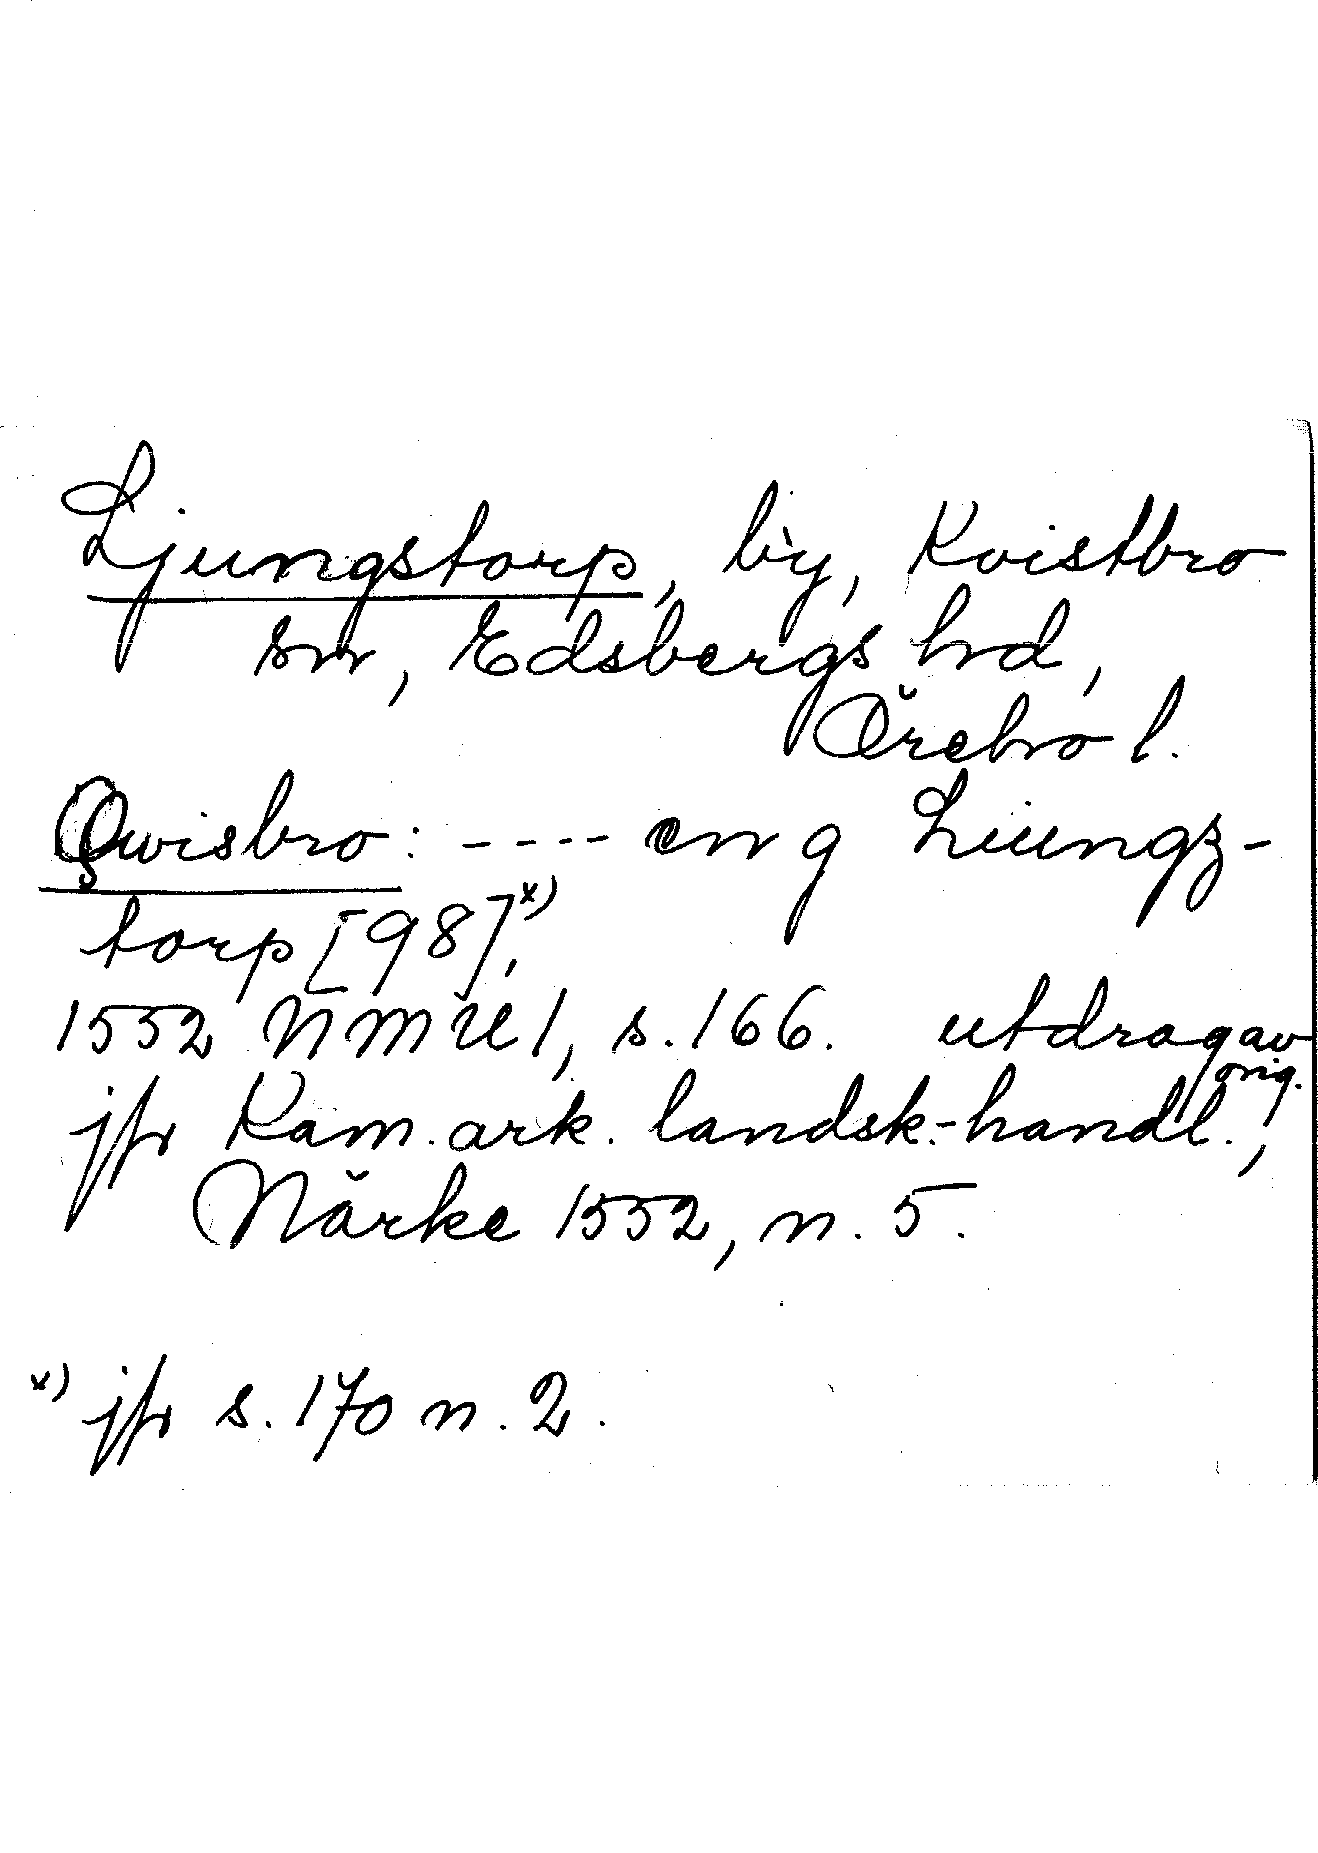 Ljungstorp, by, Kvistbro
sn, Edsbergs hd,
Örebro l.
Qwisbro: ---- en g Liungz-
torp [98],x)
1552 NMU 1, s. 166. utdrag av
orig.
jfr Kam. ark. landsk.-handl.,
Närke 1552, n. 5.
x) jfr s. 170 n. 2.